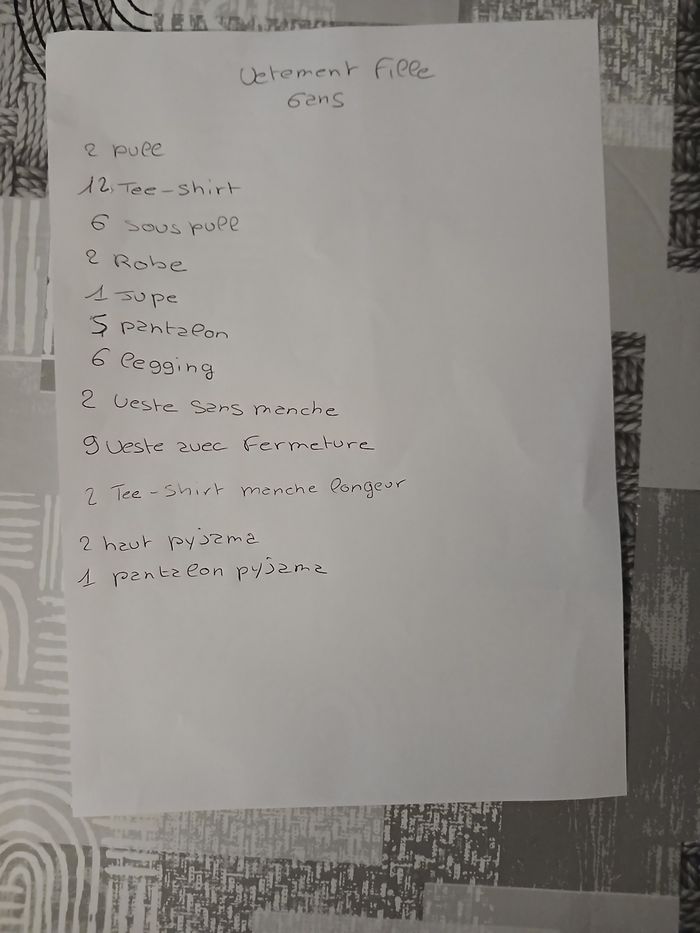 Vetement Fille
6ans
2 pull
12 Tee-shirt
6 sous pull
2 Robe
1 Jupe
5 pantalon
6 legging
2 Veste sans manche
9 Veste avec Fermeture
2 Tee-shirt manche longeur
2 haut pyjama
1 pantalon pyjama